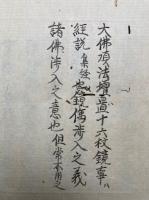 大佛頂法壇置十六枚鏡事
經說集經鏡像涉入之義
諸佛涉入之意也但常不用之